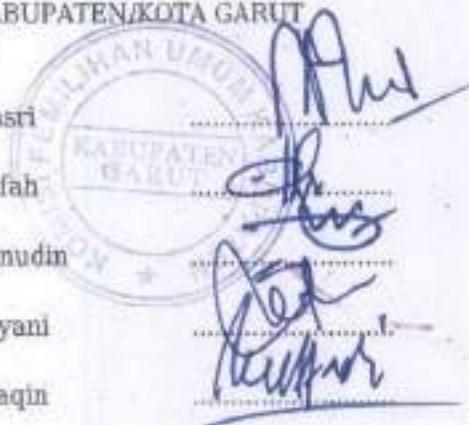 ABUPATEN/KOTA GARUT
KOMISI PEMILIHAN UMUM
KABUPATEN
GARUT
asri
fah
nudin
yani
aqin